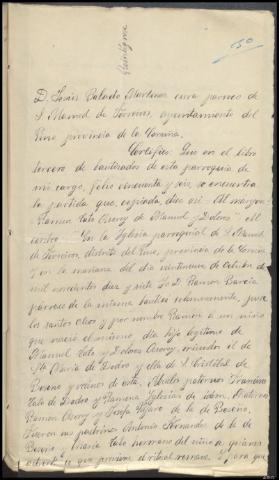 50
D. Jesús Calado Martinez cura parroco de
S. Mamed de Ferreiros, ayuntamiento del
Pino provincia de la Coruña.
Certifico: Que en el libro
tercero de bautizados de esta parroquia de
mi cargo, folio cincuenta y seis, se encuentra
la partida que, copiada, dice así: Al margen:
Ramon de Manuel y Dolores: Al
centro: En la Iglesia parroquial de S. Mamed
de Ferreiros, distrito del Pino, provincia de la Coruña
y en la mañana del dia veintiuno de
mil novecientos diez y siete Yo D. Ramon Garcia
párroco de la misma bauticé solemnemente, puse
los santos oleos y por nombre Ramon á un niño
que nació el mismo dia hijo legítimo de
Manuel y Dolores, él de
Sta. Maria de y ella de S. Cristobal de
y vecinos de esta. Abuelos paternos Francisco
de y Ramona Iglesias de idem. Maternos
Ramon y Josefa de la de
Fueron sus padrinos Antonio Fernandez de la de
y Maria hermana del niño a quienes
advertí lo que previene el ritual romano. Y para que